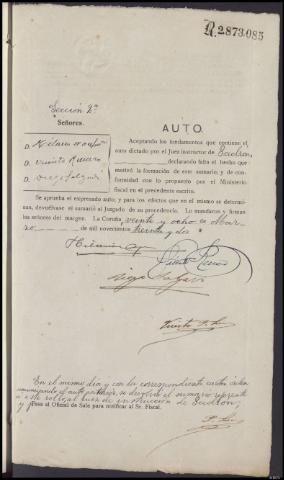 R.2873,085
Sección 2ª
Señores.
D.
D. Vicente
D. Diego Salgado
AUTO.
Aceptando los fundamentos que contiene el
auto dictado por el Juez instructor de Padrón,
declarando falta el hecho que
motivó la formación de este sumario y de con-
formidad con lo propuesto por el Ministerio
fiscal en el precedente escrito.
Se aprueba el expresado auto; y para los efectos que en el mismo se determi-
nan, devuélvase el sumario al Juzgado de su procedencia. Lo mandaron y firman
los señores del margen. La Coruña veinte y ocho de Mar-
zo de mil novecientos treinta y dos
Diego Salgado
En el mismo día y con la correspondiente carta orden
el auto se devolvió el sumario
a este rollo, al Juez de instrucción de Padrón;
y Pasa al Oficial de Sala para notificar al Sr. Fiscal.